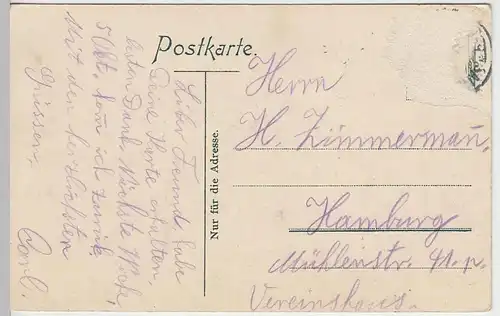 Postkarte.
Nur für die Adresse.
Herrn
H. Zimmermann,
Hamburg
Mühlenstr. 41. p.
Vereinshaus.
Lieber Freund, habe
Deine Karte erhalten.
besten Dank. Nächste Woche,
5 Okt. komm ich zurück.
Mit den herzlichsten
Grüssen,
Carl.